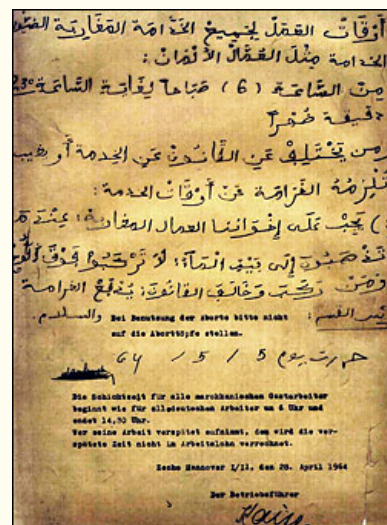 أوقات العمل لجميع الخدامة المغاربة
الخدامة مثل العمال الألمان:
من الساعة (6) صباحا لغاية الساعة
دقيقة ظهرا
ومن يختلف عن القانون عن الخدمة أو يغيب
تلزمه الغرامة عن أوقات الخدمة:
يجب على إخواننا العمال المغاربة: عندما
تذهبون إلى بيت الماء: لا تركبوا فوق
ومن ركب وخالف القانون: يدفع الغرامة
والسلام.
Bei Benutzung der Aborte bitte nicht
auf die Aborttöpfe stellen.
حررت يوم 5 / 5 / 64
Die Schichtzeit für alle marokkanischen Gastarbeiter
beginnt wie für alle deutschen Arbeiter um 6 Uhr und
endet 14,30 Uhr.
Wer seine Arbeit verspätet aufnimmt, dem wird die ver-
spätete Zeit nicht im Arbeitslohn verrechnet.
Zeche Hannover I/II, den 28. April 1964
Der Betriebsführer